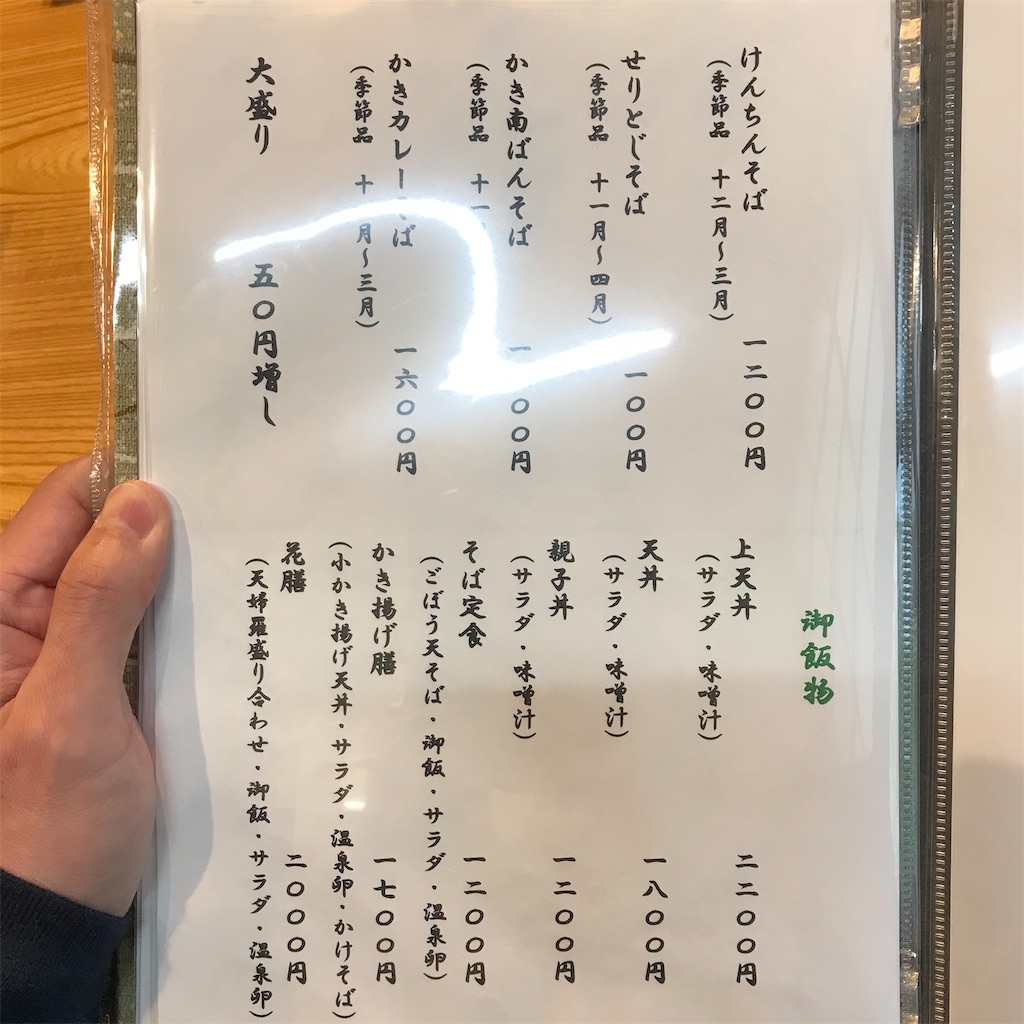 けんちんそば 一二〇〇円
(季節品 十二月~三月)
せりとじそば 一一〇〇円
(季節品 十一月~四月)
かき南ばんそば 〇〇円
(季節品 十一
かきカレー ば 一六〇〇円
(季節品 十 月~三月)
大盛り 五〇円増し
御飯物
上天丼 二二〇〇円
(サラダ・味噌汁)
天丼 一八〇〇円
(サラダ・味噌汁)
親子丼 一二〇〇円
(サラダ・味噌汁)
そば定食 一二〇〇円
(ごぼう天そば・御飯・サラダ・温泉卵)
かき揚げ膳 一七〇〇円
(小かき揚げ天丼・サラダ・温泉卵・かけそば)
花膳 二〇〇〇円
(天婦羅盛り合わせ・御飯・サラダ・温泉卵)